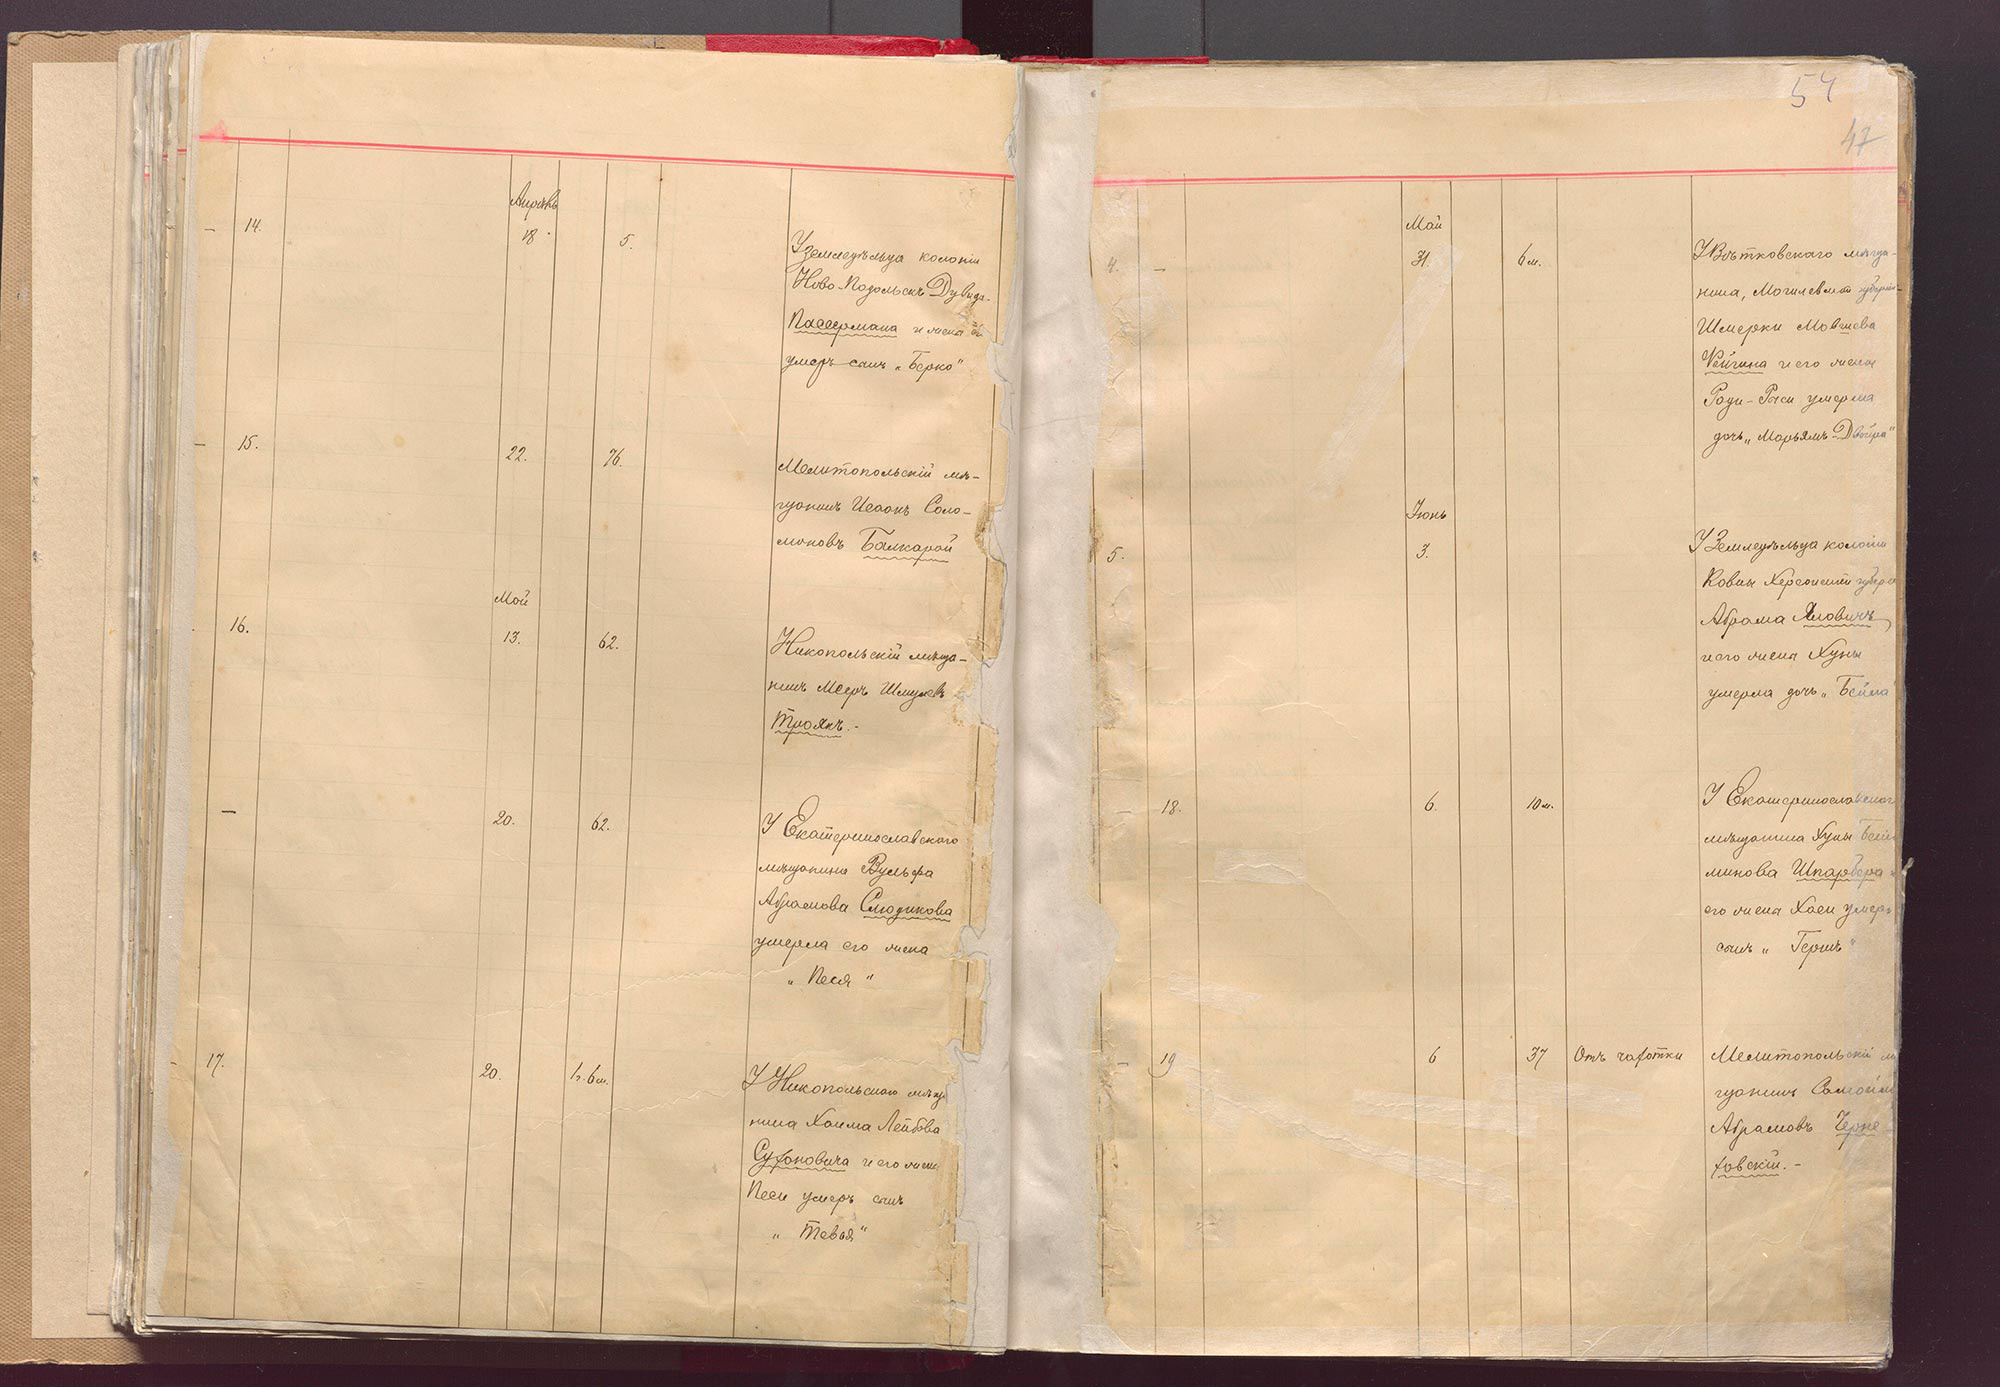 Апрѣль
14.
18
5.
У земледѣльца колоніи
Ново-Подольскъ Дувида
Пассермана и жены ѣ
умеръ сынъ „Берко"
15.
22.
76.
Мелитопольскій мѣ-
щанинъ Исаакъ Соло-
моновъ Балкарой
Май
16.
13.
62.
Никопольскій мѣща-
нинъ Мееръ Шмулев
Троянъ.-
20.
62.
У Екатеринославскаго
мѣщанина Вульфа
Абрамова Слюдикова
умерла его жена
„Песя"
17.
20.
1г. 6м.
У Никопольскаго мѣща
нина Хаима Лейбова
и его жены
Песи умеръ сынъ
„Тевья"
54
47
Май
4.
31.
6м.
У Вѣтковскаго мѣща-
нина, Могилевской губерніи
Шмерки Мовшева
Фейгина и его жены
Роди-Рыси умерла
дочь „Марьямъ-Двойра"
Іюнь
5.
3.
У Земледѣльца колоніи
Ковны Херсонской губер
Абрама
и его жены Хуны
умерла дочь „Бейла
18.
6.
10м.
У Екатеринославскаг
мѣщанина Хуны
минова Шпарбера
его жены Хаси умеръ
сынъ „Гершъ"
19
6
37
Отъ чахотки
Мелитопольскій м
щанинъ Самойл
Абрамовъ Черне-
ховскій.-